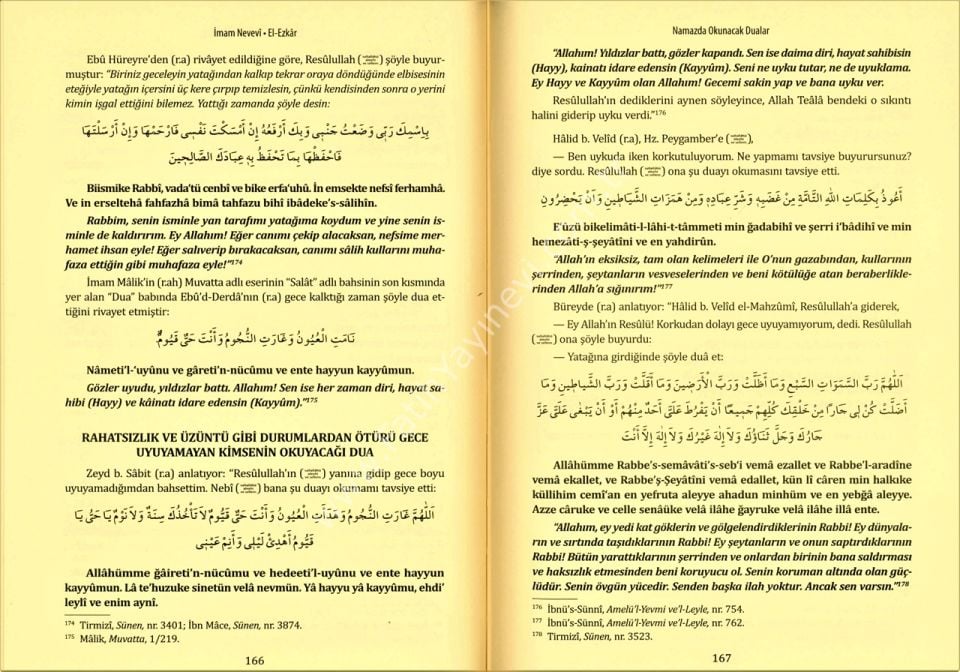 İmam Nevevî • El-Ezkâr
Ebû Hüreyre’den (r.a) rivâyet edildiğine göre, Resûlullah () şöyle buyur-
muştur: “Biriniz geceleyin yatağından kalkıp tekrar oraya döndüğünde elbisesinin
eteğiyle yatağın içersini üç kere çırpıp temizlesin, çünkü kendisinden sonra o yerini
kimin işgal ettiğini bilemez. Yattığı zamanda şöyle desin:
بِاسْمِكَ رَبِّي وَضَعْتُ جَنْبِي وَبِكَ أَرْفَعُهُ إِنْ أَمْسَكْتَ نَفْسِي فَارْحَمْهَا وَإِنْ أَرْسَلْتَهَا
فَاحْفَظْهَا بِمَا تَحْفَظُ بِهِ عِبَادَكَ الصَّالِحِينَ
Biismike Rabbî, vada’tü cenbî ve bike erfa’uhû. İn emsekte nefsî ferhamhâ.
Ve in erseltehâ fahfazhâ bimâ tahfazu bihî ibâdeke’s-sâlihîn.
Rabbim, senin isminle yan tarafımı yatağıma koydum ve yine senin is-
minle de kaldırırım. Ey Allahım! Eğer canımı çekip alacaksan, nefsime mer-
hamet ihsan eyle! Eğer salıverip bırakacaksan, canımı sâlih kullarını muha-
faza ettiğin gibi muhafaza eyle!”174
İmam Mâlik’in (r.ah) Muvatta adlı eserinin “Salât” adlı bahsinin son kısmında
yer alan “Dua” babında Ebû’d-Derdâ’nın (r.a) gece kalktığı zaman şöyle dua et-
tiğini rivayet etmiştir:
نَامَتِ الْعُيُونُ وَغَارَتِ النُّجُومُ وَأَنْتَ حَيٌّ قَيُّومٌ
Nâmeti’l-‘uyûnu ve gâreti’n-nücûmu ve ente hayyun kayyûmun.
Gözler uyudu, yıldızlar battı. Allahım! Sen ise her zaman diri, hayat sa-
hibi (Hayy) ve kâinatı idare edensin (Kayyûm).”175
RAHATSIZLIK VE ÜZÜNTÜ GİBİ DURUMLARDAN ÖTÜRÜ GECE
UYUYAMAYAN KİMSENİN OKUYACAĞI DUA
Zeyd b. Sâbit (r.a) anlatıyor: “Resûlullah’ın () yanına gidip gece boyu
uyuyamadığımdan bahsettim. Nebî () bana şu duayı okumamı tavsiye etti:
اَللّٰهُمَّ غَارَتِ النُّجُومُ وَهَدَأَتِ الْعُيُونُ وَأَنْتَ حَيٌّ قَيُّومٌ لَا تَأْخُذُكَ سِنَةٌ وَلَا نَوْمٌ يَا حَيُّ يَا
قَيُّومُ أَهْدِئْ لَيْلِي وَأَنِمْ عَيْنِي
Allâhümme ğâireti’n-nücûmu ve hedeeti’l-uyûnu ve ente hayyun
kayyûmun. Lâ te’huzuke sinetün velâ nevmün. Yâ hayyu yâ kayyûmu, ehdi’
leylî ve enim aynî.
174 Tirmizî, Sünen, nr. 3401; İbn Mâce, Sünen, nr. 3874.
175 Mâlik, Muvatta, 1/219.
166
Namazda Okunacak Dualar
“Allahım! Yıldızlar battı, gözler kapandı. Sen ise daima diri, hayat sahibisin
(Hayy), kainatı idare edensin (Kayyûm). Seni ne uyku tutar, ne de uyuklama.
Ey Hayy ve Kayyûm olan Allahım! Gecemi sakin yap ve bana uyku ver.
Resûlullah’ın dediklerini aynen söyleyince, Allah Teâlâ bendeki o sıkıntı
halini giderip uyku verdi.”176
Hâlid b. Velîd (r.a), Hz. Peygamber’e (),
— Ben uykuda iken korkutuluyorum. Ne yapmamı tavsiye buyurursunuz?
diye sordu. Resûlullah () ona şu duayı okumasını tavsiye etti.
أَعُوذُ بِكَلِمَاتِ اللهِ التَّامَّةِ مِنْ غَضَبِهِ وَشَرِّ عِبَادِهِ وَمِنْ هَمَزَاتِ الشَّيَاطِينِ وَأَنْ يَحْضُرُونِ
E’ûzü bikelimâti-l-lâhi-t-tâmmeti min ğadabihî ve şerri i’bâdihî ve min
hemezâti-ş-şeyâtîni ve en yahdirûn.
“Allah’ın eksiksiz, tam olan kelimeleri ile O’nun gazabından, kullarının
şerrinden, şeytanların vesveselerinden ve beni kötülüğe atan beraberlikle-
rinden Allah’a sığınırım!”177
Büreyde (r.a) anlatıyor: “Hâlid b. Velîd el-Mahzûmî, Resûlullah’a giderek,
— Ey Allah’ın Resûlü! Korkudan dolayı gece uyuyamıyorum, dedi. Resûlullah
() ona şöyle buyurdu:
— Yatağına girdiğinde şöyle dua et:
اَللّٰهُمَّ رَبَّ السَّمَوَاتِ السَّبْعِ وَمَا أَظَلَّتْ وَرَبَّ الْأَرَضِينَ وَمَا أَقَلَّتْ وَرَبَّ الشَّيَاطِينِ وَمَا
أَضَلَّتْ كُنْ لِي جَارًا مِنْ خَلْقِكَ كُلِّهِمْ جَمِيعًا أَنْ يَفْرُطَ عَلَيَّ أَحَدٌ مِنْهُمْ أَوْ أَنْ يَبْغَى عَلَيَّ عَزَّ
جَارُكَ وَجَلَّ ثَنَاؤُكَ وَلَا إِلَهَ غَيْرُكَ وَلَا إِلَهَ إِلَّا أَنْتَ
Allâhümme Rabbe’s-semâvâti’s-seb’i vemâ ezallet ve Rabbe’l-aradîne
vemâ ekallet, ve Rabbe’ş-Şeyâtîni vemâ edallet, kün lî câren min halkıke
küllihim cemî’an en yefruta aleyye ahadun minhüm ve en yebğâ aleyye.
Azze câruke ve celle senâüke velâ ilâhe ğayruke velâ ilâhe illâ ente.
“Allahım, ey yedi kat göklerin ve gölgelendirdiklerinin Rabbi! Ey dünyala-
rın ve sırtında taşıdıklarının Rabbi! Ey şeytanların ve onun saptırdıklarının
Rabbi! Bütün yarattıklarının şerrinden ve onlardan birinin bana saldırması
ve haksızlık etmesinden beni koruyucu ol. Senin koruman altında olan güç-
lüdür. Senin övgün yücedir. Senden başka ilah yoktur. Ancak sen varsın.”178
176 İbnü’s-Sünnî, Amelü’l-Yevmi ve’l-Leyle, nr. 754.
177 İbnü’s-Sünnî, Amelü’l-Yevmi ve’l-Leyle, nr. 762.
178 Tirmizî, Sünen, nr. 3523.
167